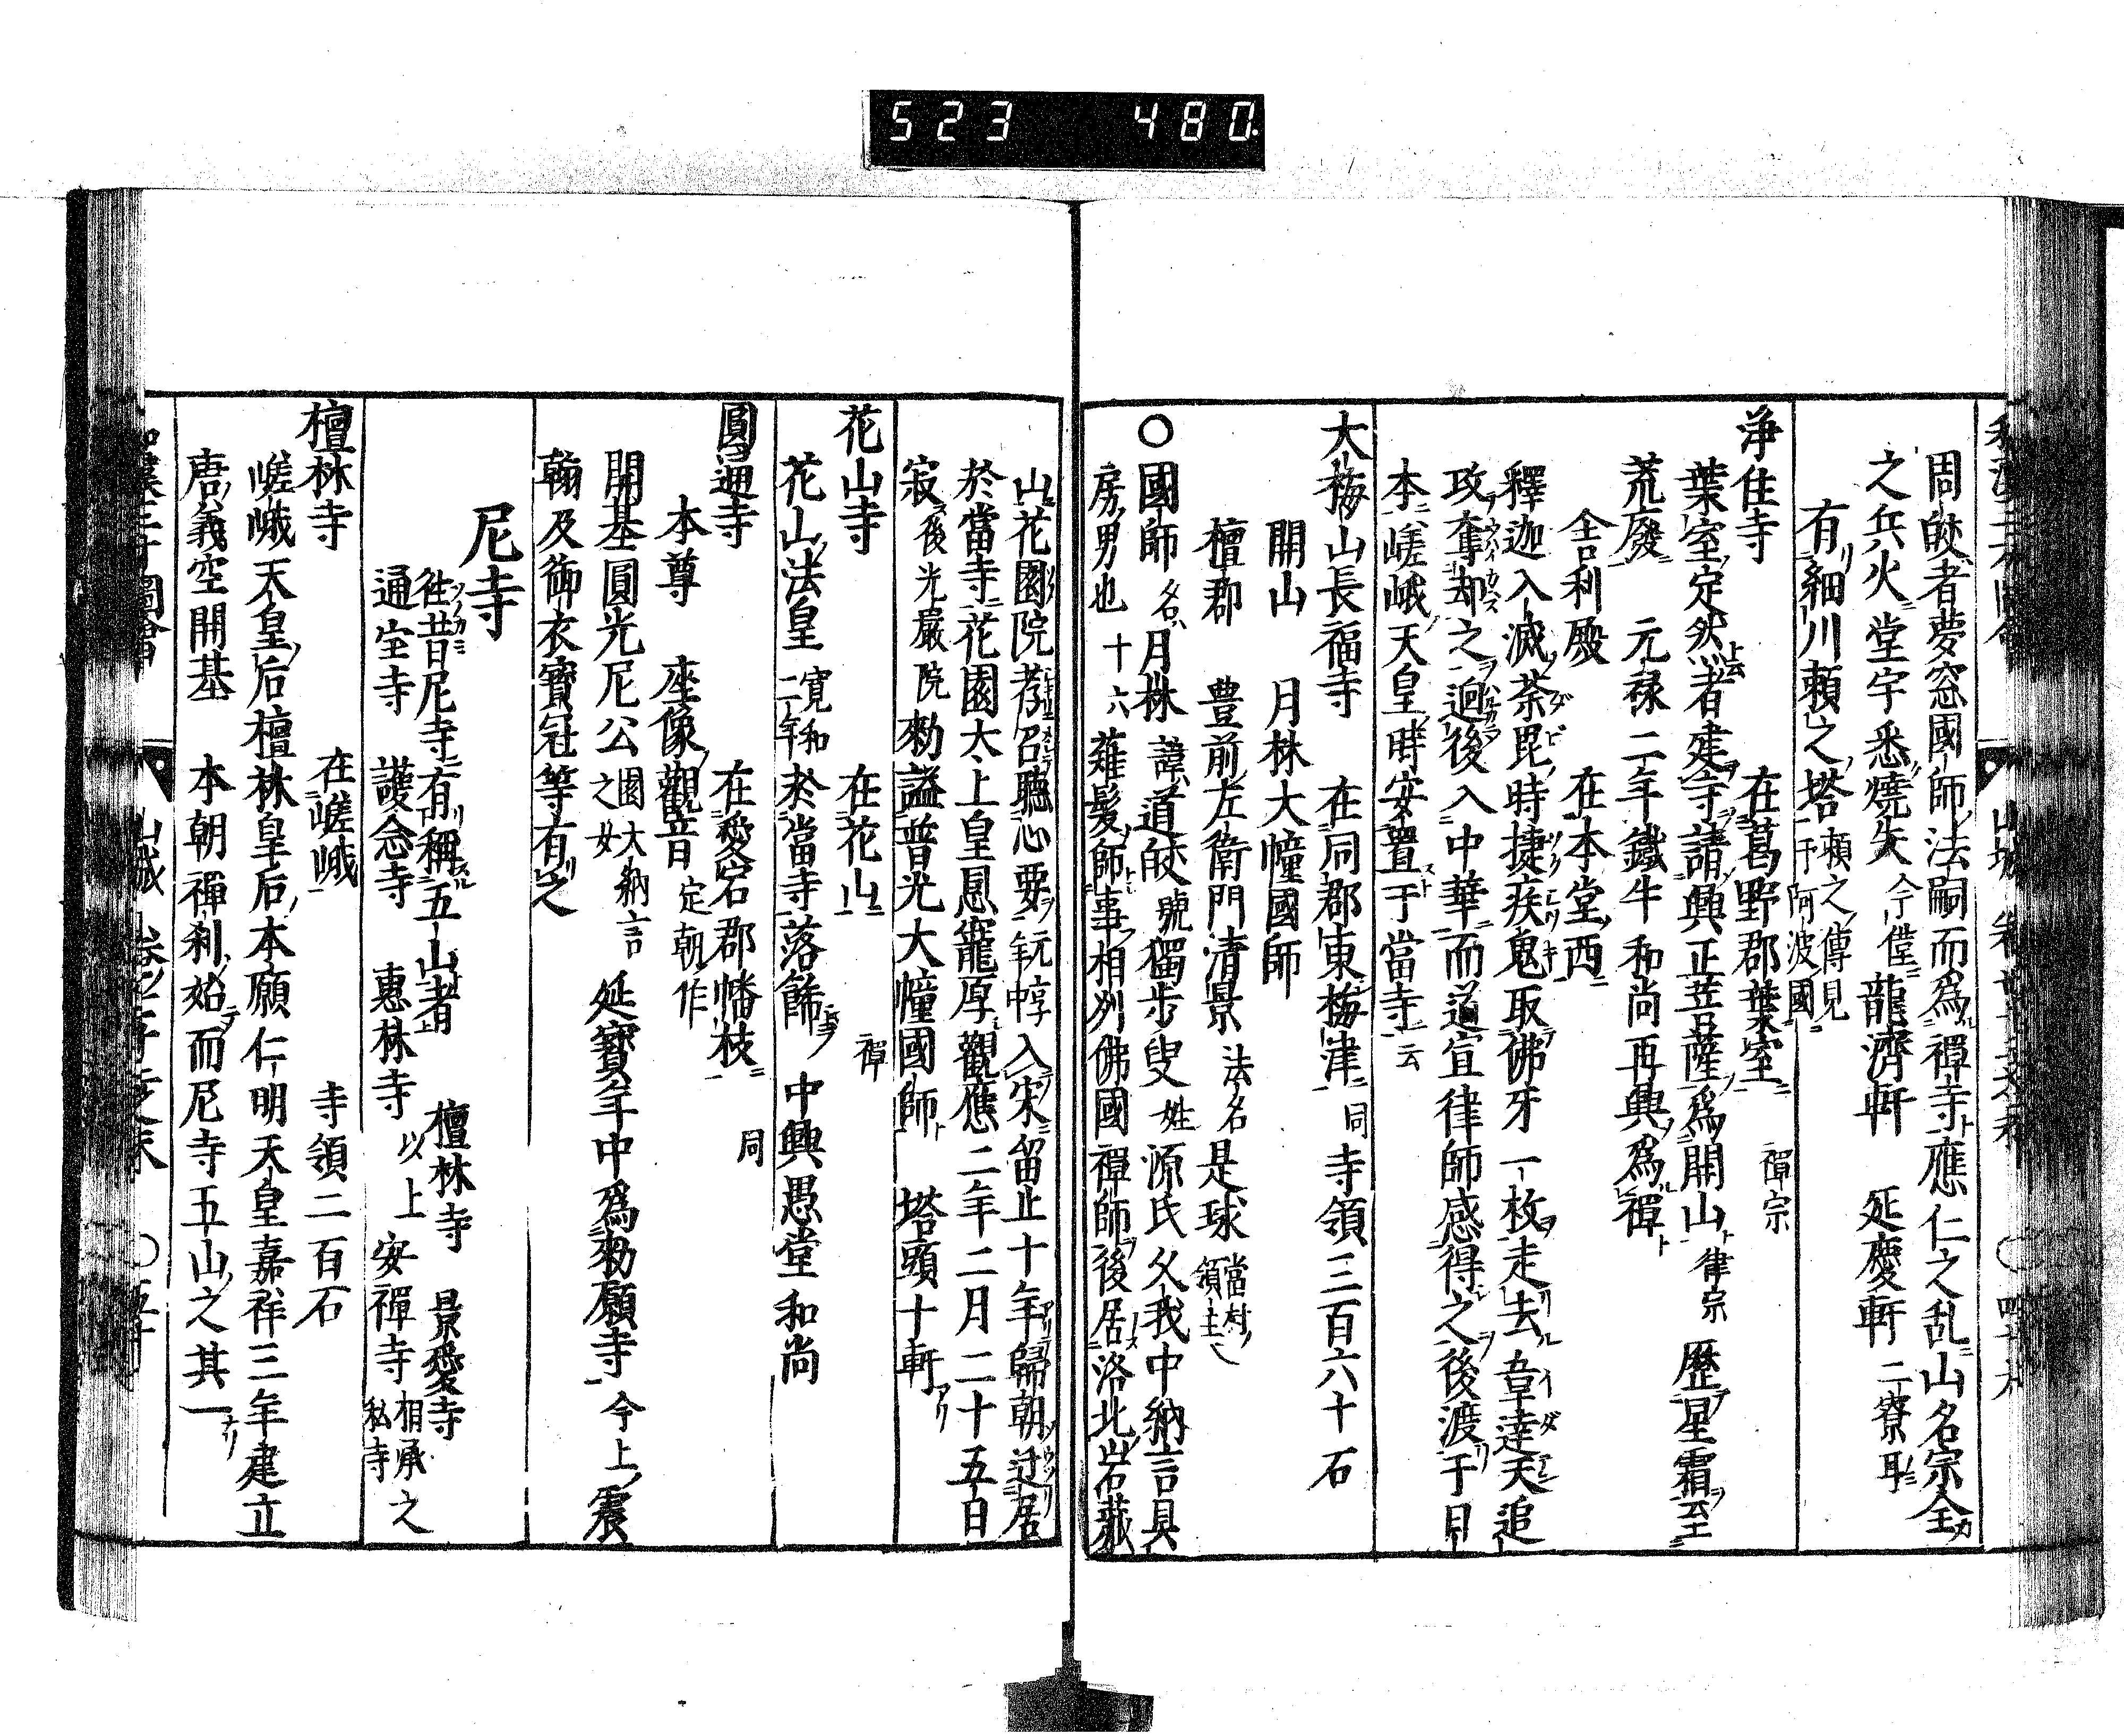 523 480
周皎者夢窓國師法嗣而爲禪寺應仁之乱山名宗全
之兵火堂宇悉燒失今僅龍濟軒 延慶軒二寮耳
有細川頼之塔頼之傳見于阿波國
浄住寺 在葛野郡葉室 禪宗
葉室定然者建寺請興正菩薩爲開山律宗 歷星霜至
荒廢 元禄二年鐵牛和尚再興爲禪
舎利殿 在本堂西
釋迦入滅荼毘時捷疾鬼取佛牙一枚走去韋達天追
攻奪却之逈後入中華而道宣律師感得之後渡于日
本嵯峨天皇時安置于當寺云
大梅山長福寺 在同郡東梅津 同 寺領三百六十石
開山 月林大幢國師
檀郡 豊前左衛門清景法名是球當村領主
〇國師名月林諱道皎號獨步叟姓源氏久我中納言具
房男也十六薙髮師事相列佛國禪師後居洛北岩藏
山花園院孝召聽心要元享年中入宋留止十年歸朝迁居
於當寺花園太上皇恩寵厚觀應二年二月二十五日
寂後光嚴院勅謚普光大幢國師 塔頭十軒
花山寺 在花山 禪
花山法皇寛和二年於當寺落餝 中興愚堂和尚
圓通寺 在愛宕郡幡枝 同
本尊 座像觀音定朝作
開基圓光尼公園大納言之女 延寶年中爲勅願寺今上震
翰及御衣寶冠等有之
尼寺
徃昔尼寺有稱五山者 檀林寺 景愛寺
通玄寺 護念寺 惠林寺以上 安禪寺相承之私寺
檀林寺 在嵯峨 寺領二百石
嵯峨天皇后檀林皇后本願仁明天皇嘉祥三年建立
唐義空開基 本朝禪刹始而尼寺五山之其一